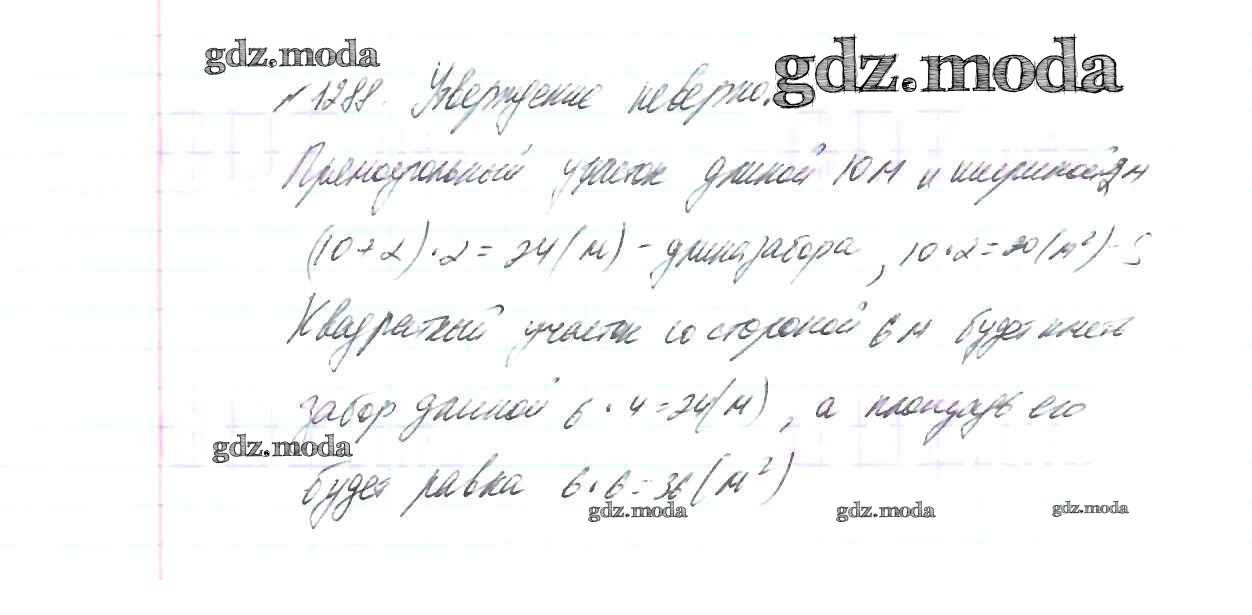 gdz.moda
gdz.moda
№ 1288. Утверждение неверно.
Прямоугольный участок длиной 10 м и шириной 2 м
(10 + 2) · 2 = 24 (м) - длина забора, 10 · 2 = 20 (м²) - S
Квадратный участок со стороной 6 м будет иметь
забор длиной 6 · 4 = 24 (м), а площадь его
gdz.moda
будет равна 6 · 6 = 36 (м²)
gdz.moda
gdz.moda
gdz.moda